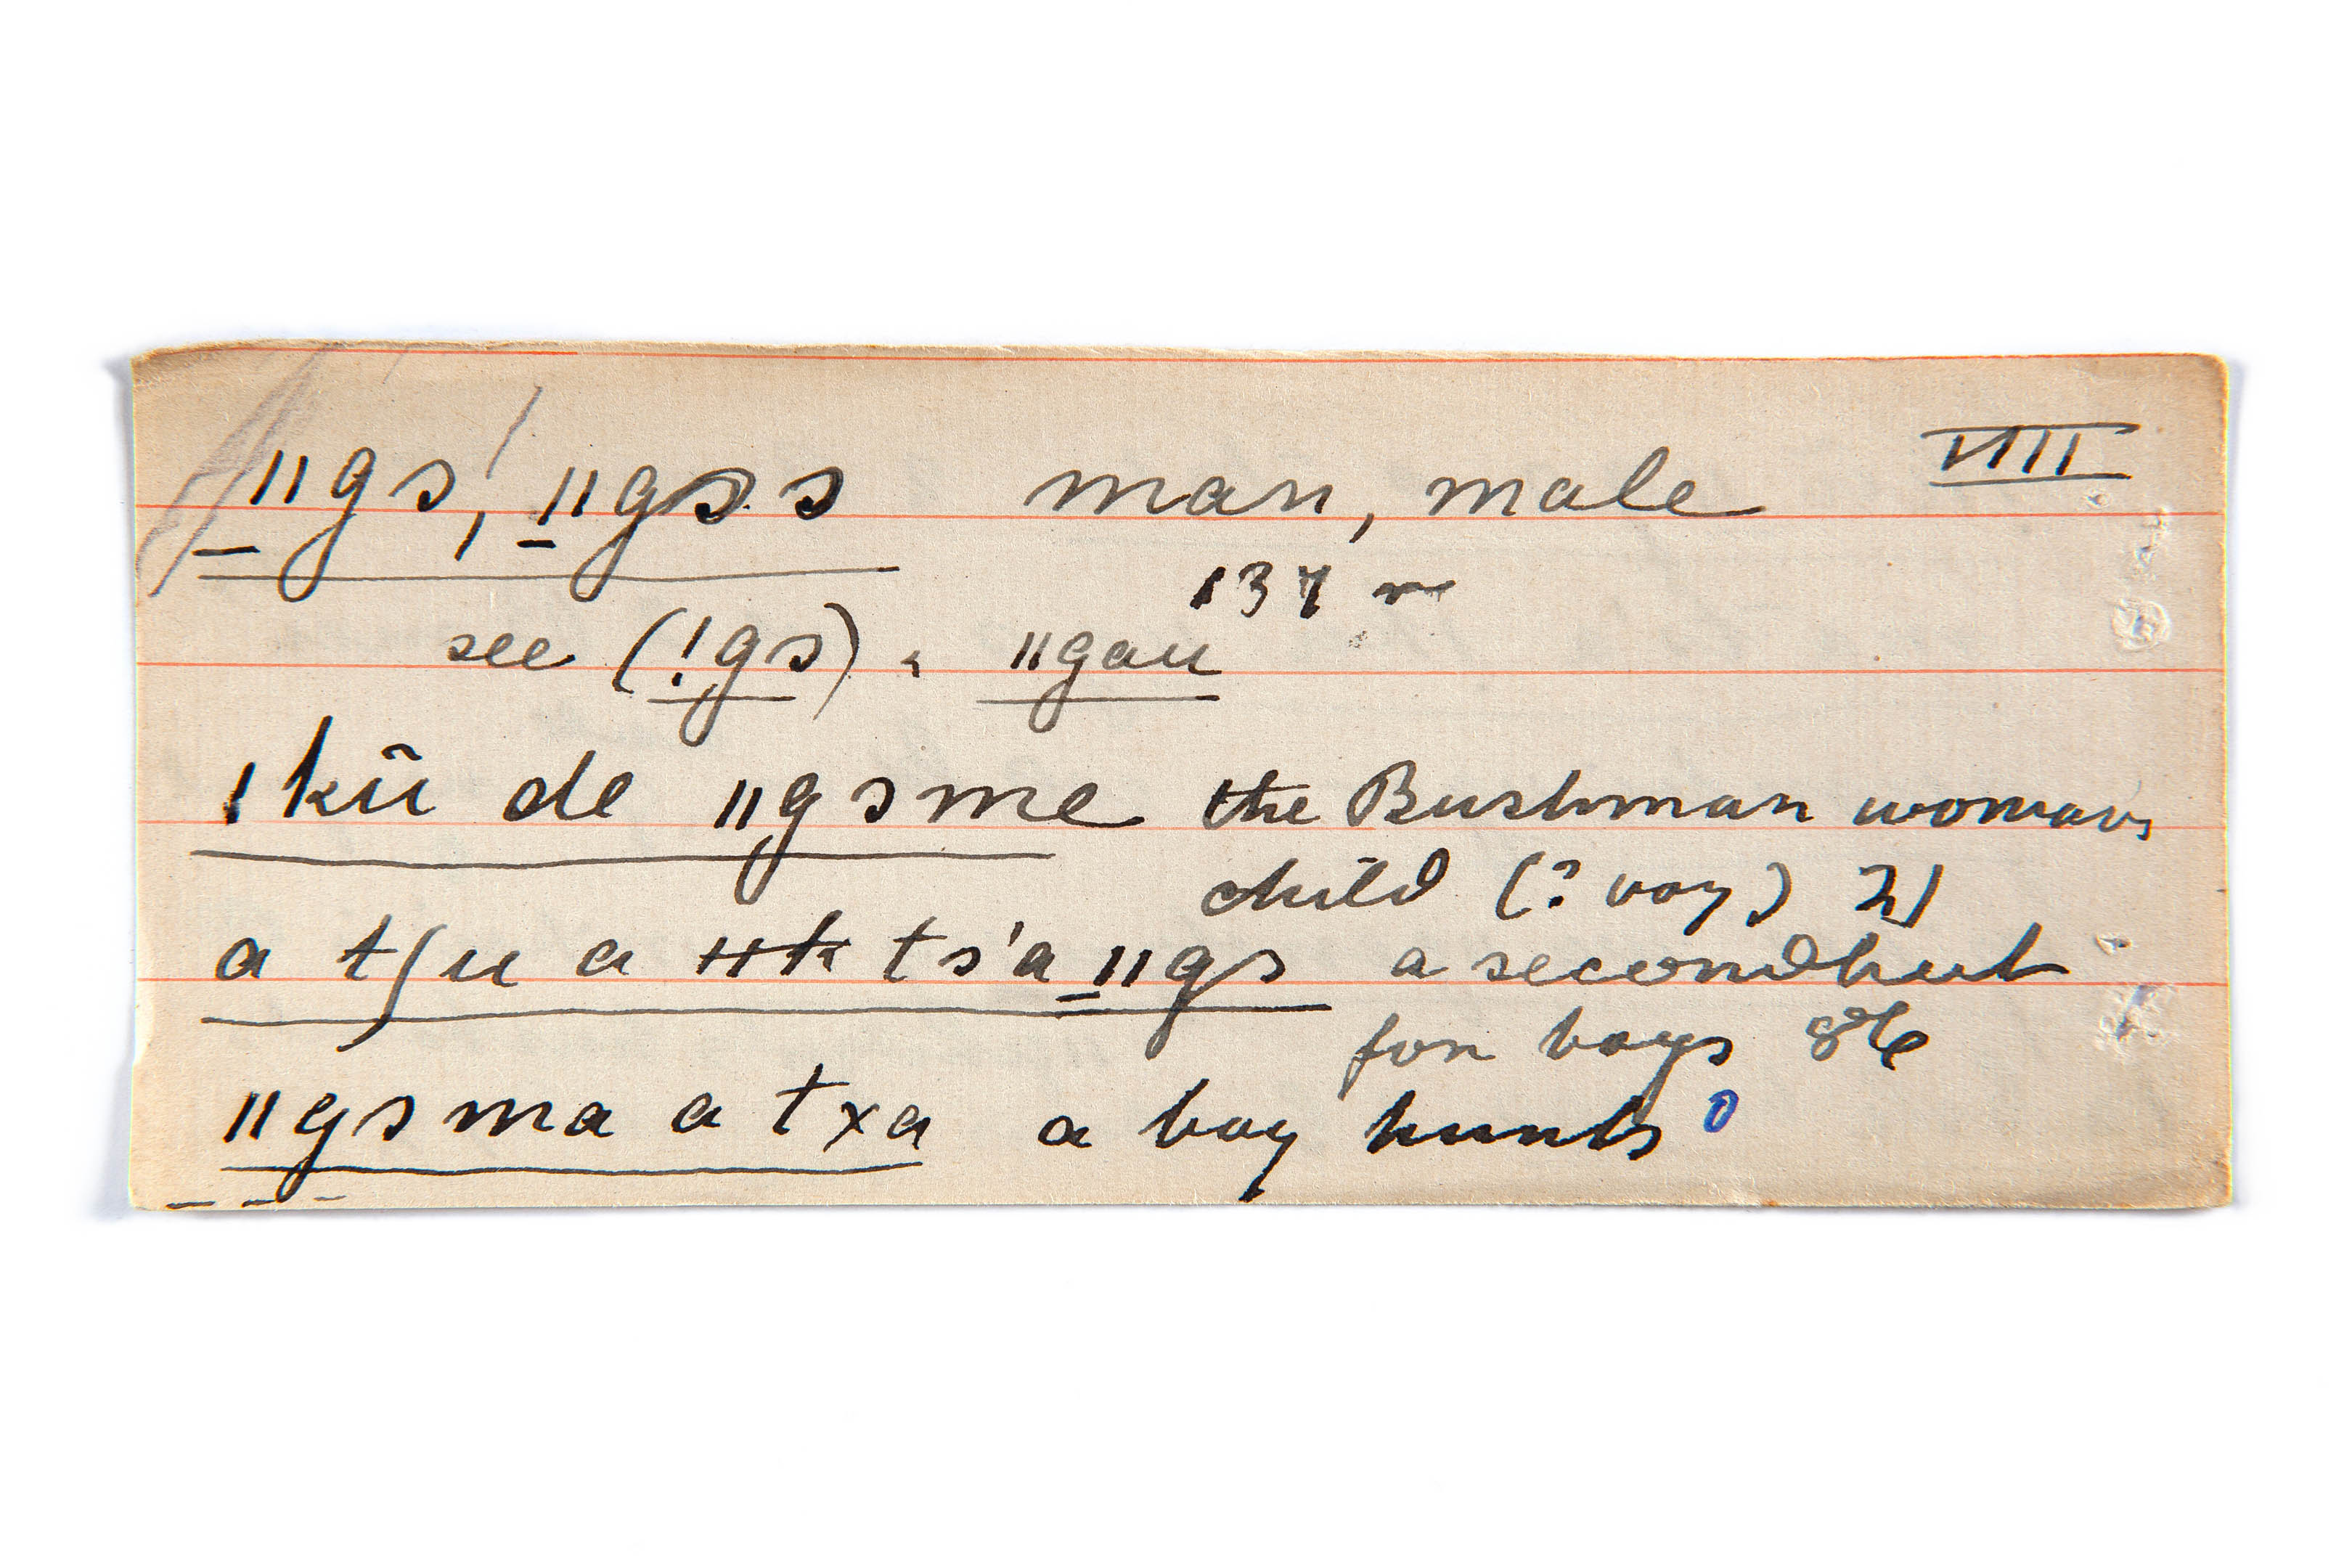 ǁgɔ, ǁgɔɔ man, male VIII
137
see (ǃgɔ) ǁgau
ǀkũ de ǁgɔme the Bushman woman's
child (? boy) 21
a tʃu a ts'a ǁgɔ a second hut
for boys
ǁgɔma a txa a boy hunts